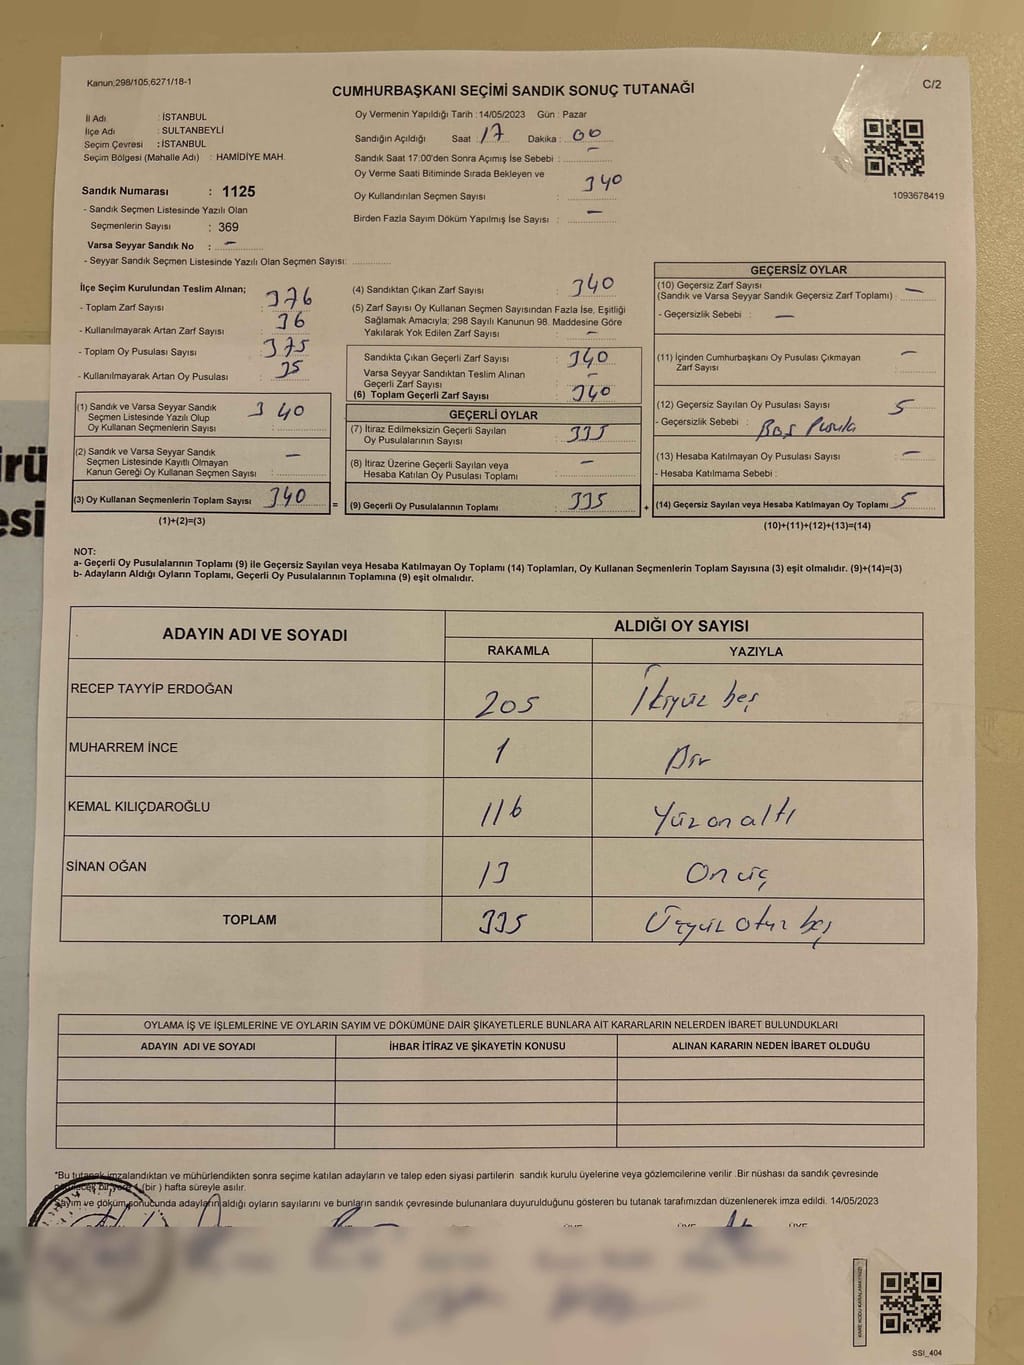 Kanun,298/105,6271/18-1
CUMHURBAŞKANI SEÇİMİ SANDIK SONUÇ TUTANAĞI
C/2
İl Adı : İSTANBUL
İlçe Adı : SULTANBEYLİ
Seçim Çevresi : İSTANBUL
Seçim Bölgesi (Mahalle Adı) : HAMİDİYE MAH.
Sandık Numarası : 1125
- Sandık Seçmen Listesinde Yazılı Olan
Seçmenlerin Sayısı : 369
Varsa Seyyar Sandık No : —
- Seyyar Sandık Seçmen Listesinde Yazılı Olan Seçmen Sayısı:
Oy Vermenin Yapıldığı Tarih : 14/05/2023 Gün : Pazar
Sandığın Açıldığı Saat : 17 Dakika : 00
Sandık Saat 17:00'den Sonra Açımış İse Sebebi : —
Oy Verme Saati Bitiminde Sırada Bekleyen ve
Oy Kullandırılan Seçmen Sayısı : 340
Birden Fazla Sayım Döküm Yapılmış İse Sayısı : —
1093678419
İlçe Seçim Kurulundan Teslim Alınan;
- Toplam Zarf Sayısı : 376
- Kullanılmayarak Artan Zarf Sayısı : 36
- Toplam Oy Pusulası Sayısı : 375
- Kullanılmayarak Artan Oy Pusulası : 35
(1) Sandık ve Varsa Seyyar Sandık
Seçmen Listesinde Yazılı Olup
Oy Kullanan Seçmenlerin Sayısı : 340
(2) Sandık ve Varsa Seyyar Sandık
Seçmen Listesinde Kayıtlı Olmayan
Kanun Gereği Oy Kullanan Seçmen Sayısı : —
(3) Oy Kullanan Seçmenlerin Toplam Sayısı : 340
(1)+(2)=(3)
=
(4) Sandıktan Çıkan Zarf Sayısı : 340
(5) Zarf Sayısı Oy Kullanan Seçmen Sayısından Fazla İse, Eşitliği
Sağlamak Amacıyla; 298 Sayılı Kanunun 98. Maddesine Göre
Yakılarak Yok Edilen Zarf Sayısı : —
Sandıkta Çıkan Geçerli Zarf Sayısı : 340
Varsa Seyyar Sandıktan Teslim Alınan
Geçerli Zarf Sayısı : —
(6) Toplam Geçerli Zarf Sayısı : 340
GEÇERLİ OYLAR
(7) İtiraz Edilmeksizin Geçerli Sayılan
Oy Pusulalarının Sayısı : 335
(8) İtiraz Üzerine Geçerli Sayılan veya
Hesaba Katılan Oy Pusulası Toplamı : —
(9) Geçerli Oy Pusulalarının Toplamı : 335
+
GEÇERSİZ OYLAR
(10) Geçersiz Zarf Sayısı
(Sandık ve Varsa Seyyar Sandık Geçersiz Zarf Toplamı) : —
- Geçersizlik Sebebi : —
(11) İçinden Cumhurbaşkanı Oy Pusulası Çıkmayan
Zarf Sayısı : —
(12) Geçersiz Sayılan Oy Pusulası Sayısı : 5
- Geçersizlik Sebebi : Boş Pusula
(13) Hesaba Katılmayan Oy Pusulası Sayısı : —
- Hesaba Katılmama Sebebi :
(14) Geçersiz Sayılan veya Hesaba Katılmayan Oy Toplamı 5
(10)+(11)+(12)+(13)=(14)
NOT:
a- Geçerli Oy Pusulalarının Toplamı (9) ile Geçersiz Sayılan veya Hesaba Katılmayan Oy Toplamı (14) Toplamları, Oy Kullanan Seçmenlerin Toplam Sayısına (3) eşit olmalıdır. (9)+(14)=(3)
b- Adayların Aldığı Oyların Toplamı, Geçerli Oy Pusulalarının Toplamına (9) eşit olmalıdır.
ADAYIN ADI VE SOYADI
ALDIĞI OY SAYISI
RAKAMLA YAZIYLA
RECEP TAYYİP ERDOĞAN 205 İkiyüz beş
MUHARREM İNCE 1 Bir
KEMAL KILIÇDAROĞLU 116 Yüz on altı
SİNAN OĞAN 13 On üç
TOPLAM 335 Üçyüz otuz beş
OYLAMA İŞ VE İŞLEMLERİNE VE OYLARIN SAYIM VE DÖKÜMÜNE DAİR ŞİKAYETLERLE BUNLARA AİT KARARLARIN NELERDEN İBARET BULUNDUKLARI
ADAYIN ADI VE SOYADI İHBAR İTİRAZ VE ŞİKAYETİN KONUSU ALINAN KARARIN NEDEN İBARET OLDUĞU
*Bu tutanak imzalandıktan ve mühürlendikten sonra seçime katılan adayların ve talep eden siyasi partilerin sandık kurulu üyelerine veya gözlemcilerine verilir .Bir nüshası da sandık çevresinde
bir yere 1 (bir ) hafta süreyle asılır.
Sayım ve döküm sonucunda adayların aldığı oyların sayılarını ve bunların sandık çevresinde bulunanlara duyurulduğunu gösteren bu tutanak tarafımızdan düzenlenerek imza edildi. 14/05/2023
SSI_404
rü
esi